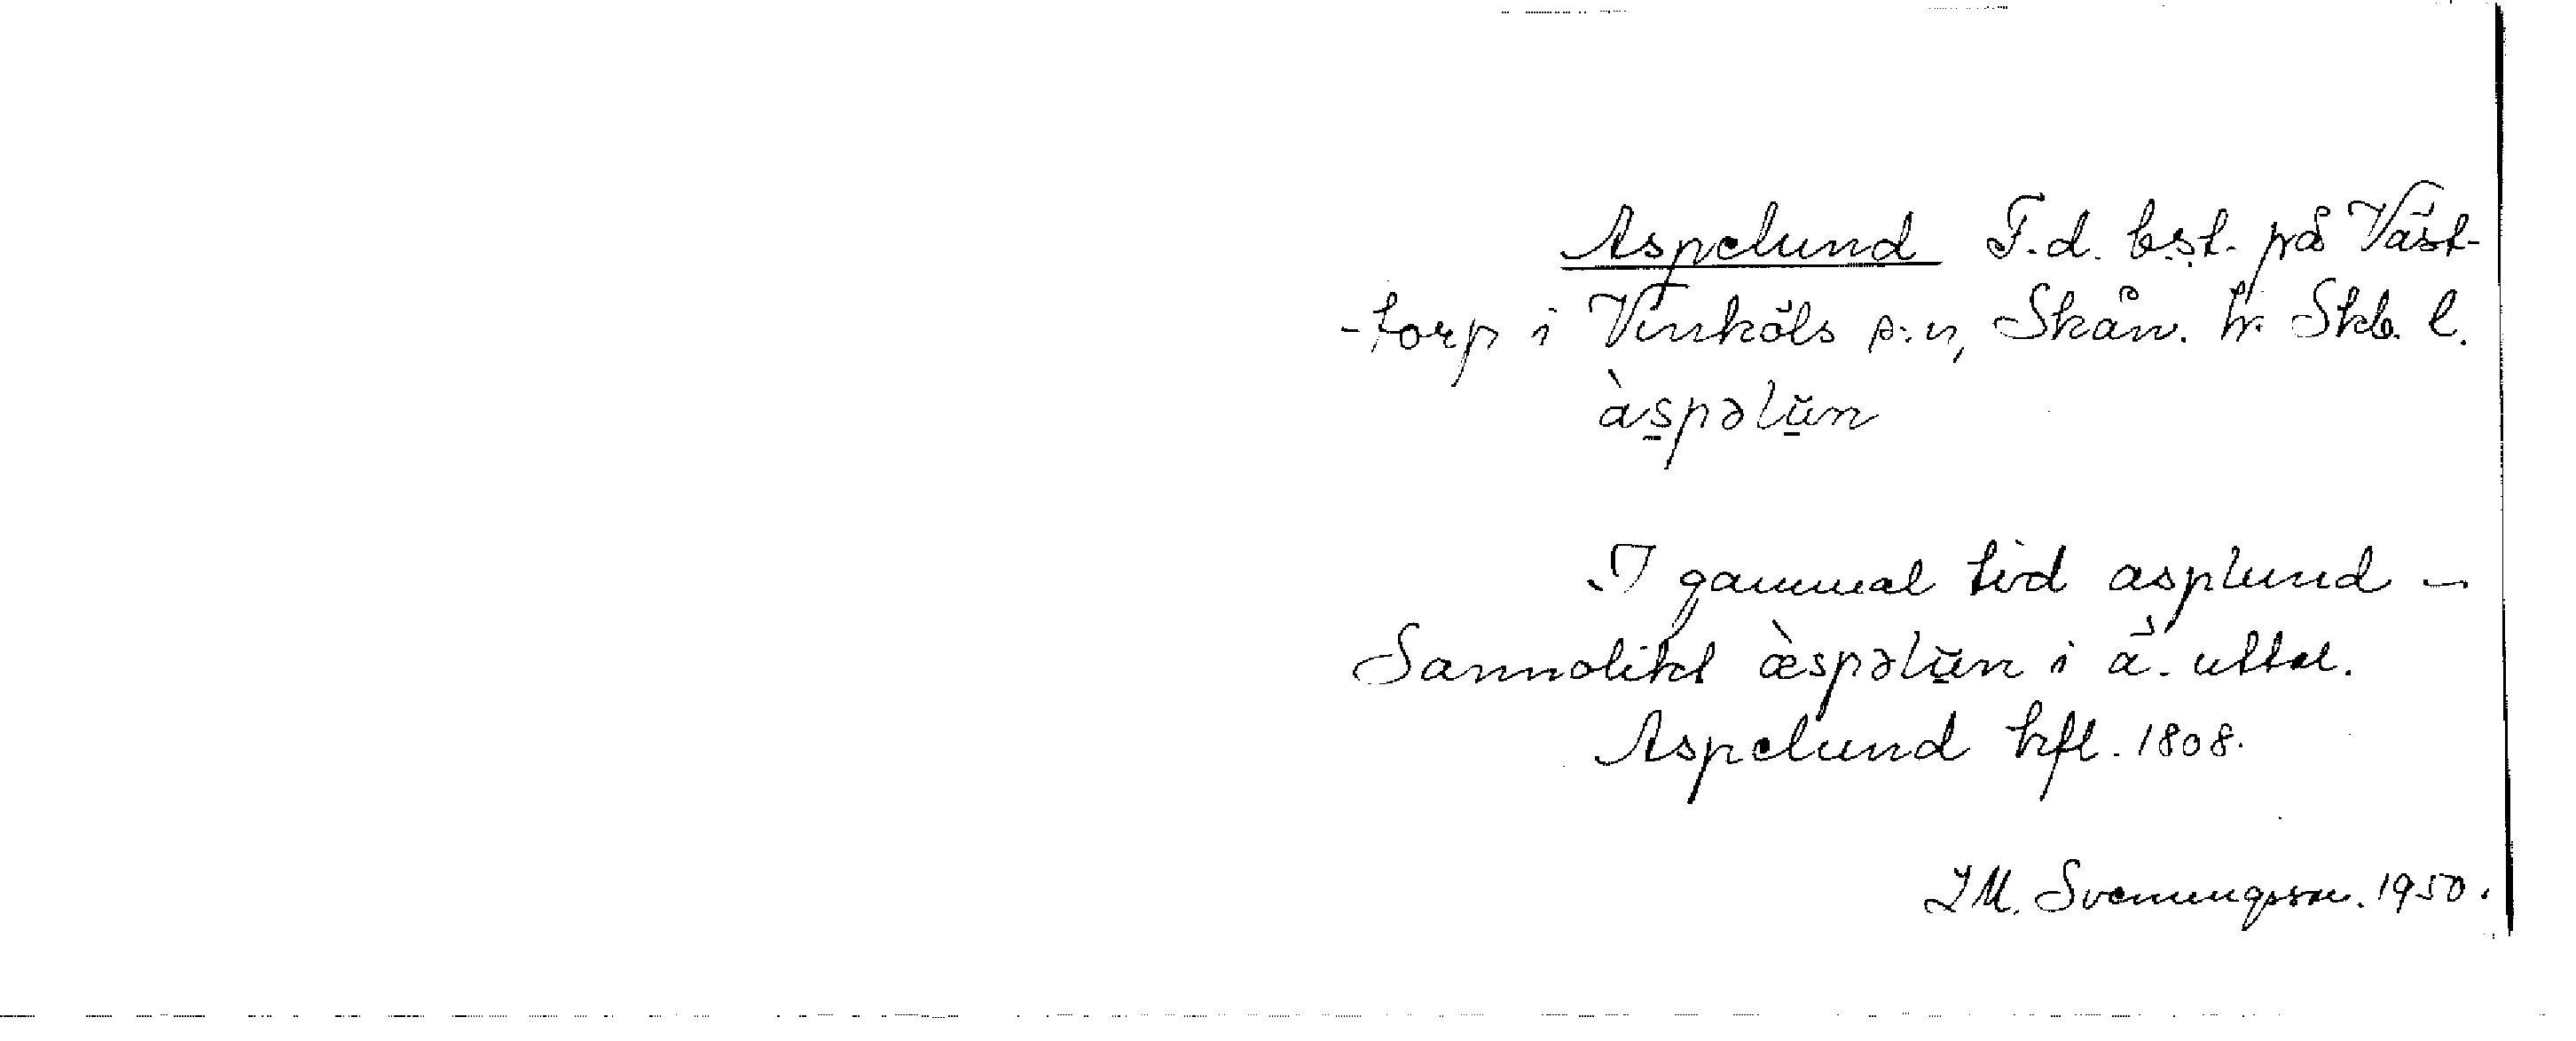 Aspelund F.d. b.st. på Väst-
-torp i Vinköls s:n, Skån. hr. Skb. l.
àspəlŭn
I gammal tid asplund –
Sannolikt æ̀spəlŭn i ä. uttal.
Aspelund hfl. 1808.
J M. Svenungsson. 1950.